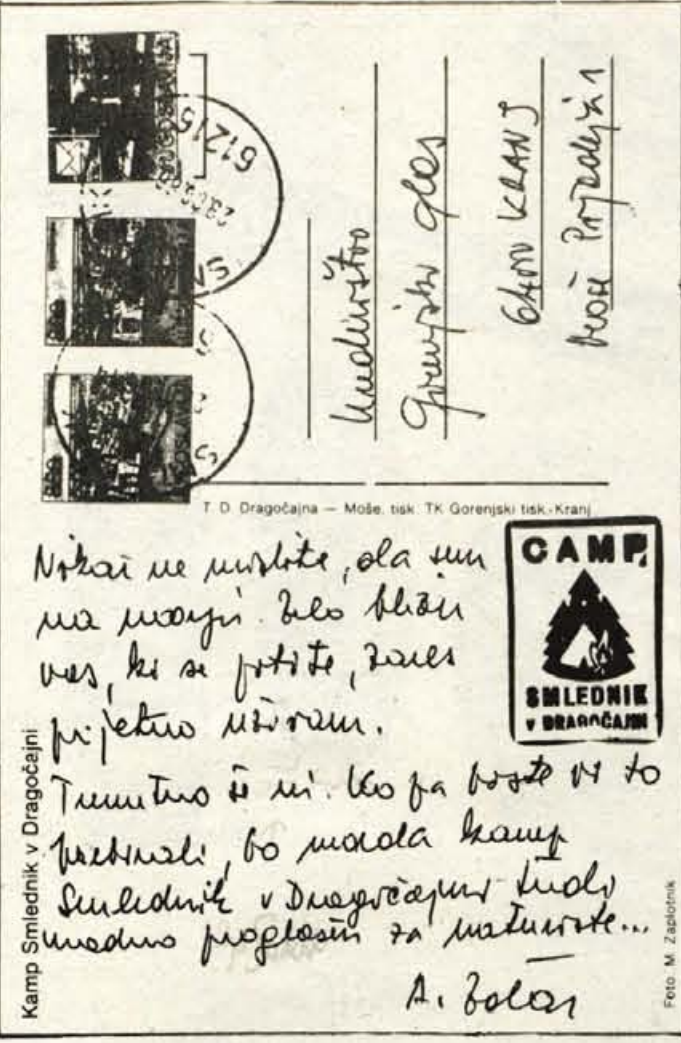 61215
Uredništvo
Gorenjski glas
64000 KRANJ
Moše Pijadeja 1
T. D. Dragočajna — Moše. tisk. TK Gorenjski tisk - Kranj
Nikar ne mislite, da sem
na morju. Zelo blizu
vas, ki se potite, zares
prijetno uživam.
Trenutno še ni. Ko pa boste vi to
prebirali, bo morda kamp
Smlednik v Dragočajni tudi
uradno proglašen za naturiste...
A. Žalar
CAMP
SMLEDNIK
v DRAGOČAJNI
Kamp Smlednik v Dragočajni
Foto: M. Zaplotnik